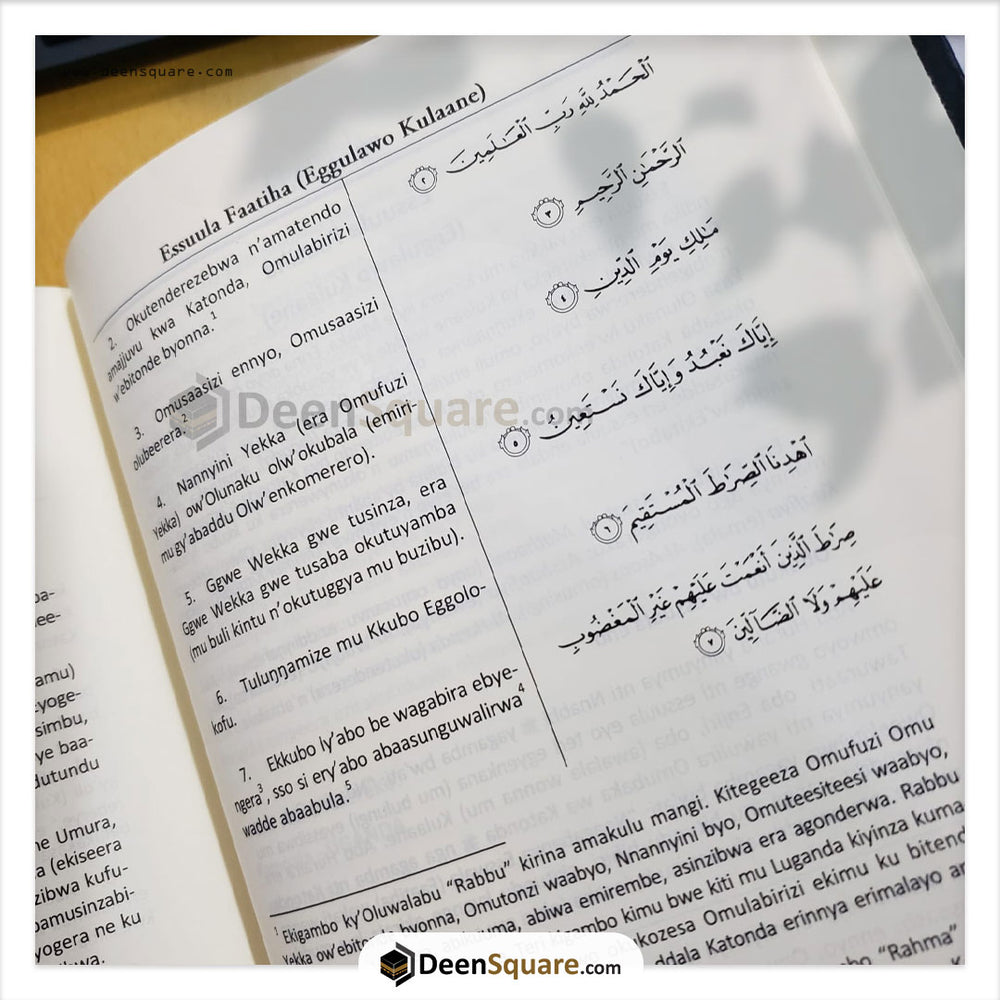 deensquare.com
Essuula Faatiha (Eggulawo Kulaane)
2. Okutenderezebwa n’amatendo
amajjuvu kwa Katonda, Omulabirizi
w’ebitonde byonna.¹
3. Omusaasizi ennyo, Omusaasizi
olubeerera.²
4. Nannyini Yekka (era Omufuzi
Yekka) ow’Olunaku olw’okubala (emiri-
mu gy’abaddu Olw’enkomerero).
5. Ggwe Wekka gwe tusinza, era
Ggwe Wekka gwe tusaba okutuyamba
(mu buli kintu n’okutuggya mu buzibu).
6. Tuluŋŋamize mu Kkubo Eggolo-
kofu.
7. Ekkubo ly’abo be wagabira ebye-
ngera³, sso si ery’abo abaasunguwalirwa⁴
wadde abaabula.⁵
ٱلْحَمْدُ لِلَّهِ رَبِّ ٱلْعَـٰلَمِينَ ٢
ٱلرَّحْمَـٰنِ ٱلرَّحِيمِ ٣
مَـٰلِكِ يَوْمِ ٱلدِّينِ ٤
إِيَّاكَ نَعْبُدُ وَإِيَّاكَ نَسْتَعِينُ ٥
ٱهْدِنَا ٱلصِّرَٰطَ ٱلْمُسْتَقِيمَ ٦
صِرَٰطَ ٱلَّذِينَ أَنْعَمْتَ عَلَيْهِمْ غَيْرِ ٱلْمَغْضُوبِ
عَلَيْهِمْ وَلَا ٱلضَّآلِّينَ ٧
¹ Ekigambo ky’Oluwalabu “Rabbu” kirina amakulu mangi. Kitegeeza Omufuzi Omu
Yekka ow’ebitonde byonna, Omutonzi waabyo, Nnannyini byo, Omuteesiteesi waabyo,
abiwa emirembe, asinzibwa era agonderwa. Rabbu
kimu bwe kiti mu Luganda kiyinza kuma
Omulabirizi ekimu ku bitend
Katonda erinnya erimalayo
“Rahma”
ba-
ee-
amu)
yoge-
simbu,
ye baa-
dutundu
ne Umura,
a (ekiseera
zibwa kufu-
yogera ne ku
DeenSquare.com
DeenSquare.com